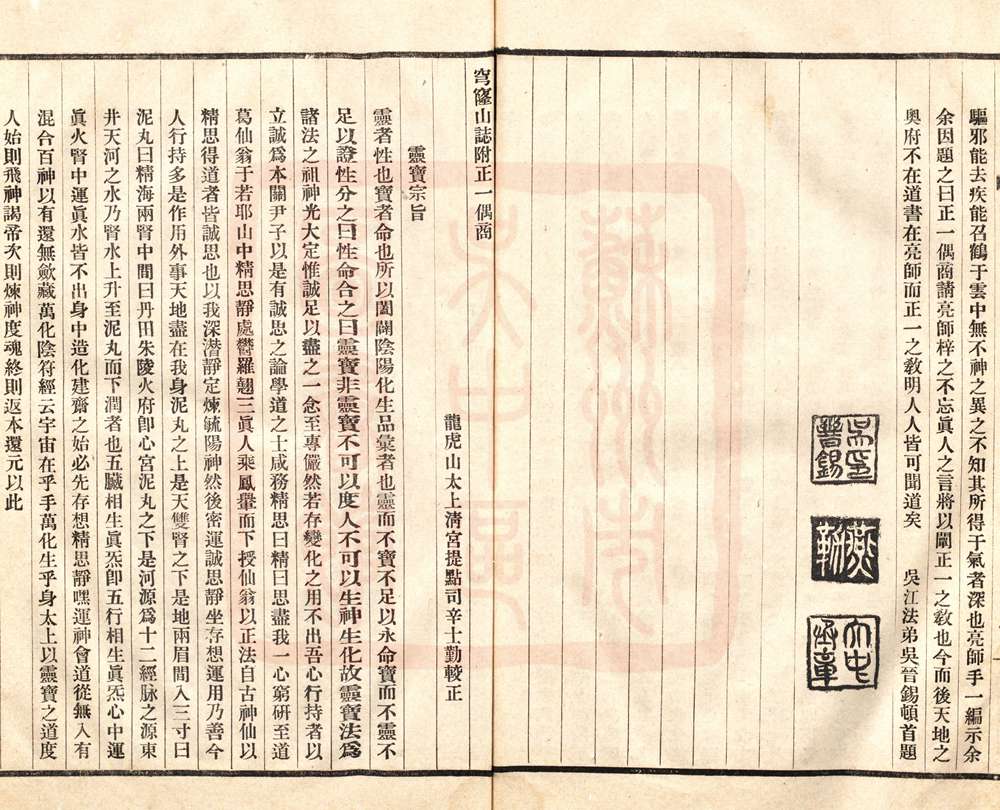 驅邪能去疾能召鶴于雲中無不神之異之不知其所得于氣者深也亮師手一編示余
余因題之曰正一偶商請亮師梓之不忘眞人之言將以闡正一之敎也今而後天地之
奧府不在道書在亮師而正一之敎明人人皆可聞道矣　吳江法弟吳晉錫頓首題
吳印晉錫
燕勒
大中丞章
穹窿山誌附正一偶商
龍虎山太上清宮提點司辛士勤較正
靈寶宗旨
靈者性也寶者命也所以闔闢陰陽化生品彙者也靈而不寶不足以永命寶而不靈不
足以證性分之曰性命合之曰靈寶非靈寶不可以度人不可以生神生化故靈寶法爲
諸法之祖神光大定惟誠足以盡之一念至專儼然若存變化之用不出吾心行持者以
立誠爲本關尹子以是有誠思之論學道之士咸務精思曰精曰思盡我一心窮研至道
葛仙翁于若耶山中精思靜處鬱羅翹三眞人乘鳳轝而下授仙翁以正法自古神仙以
精思得道者皆誠思也以我深潛靜定煉毓陽神然後密運誠思靜坐存想運用乃善今
人行持多是作用外事天地盡在我身泥丸之上是天雙腎之下是地兩眉間入三寸曰
泥丸曰精海兩腎中間曰丹田朱陵火府卽心宮泥丸之下是河源爲十二經脉之源東
井天河之水乃腎水上升至泥丸而下潤者也五臟相生眞炁卽五行相生眞炁心中運
眞火腎中運眞水皆不出身中造化建齋之始必先存想精思靜嘿運神會道從無入有
混合百神以有還無斂藏萬化陰符經云宇宙在乎手萬化生乎身太上以靈寶之道度
人始則飛神謁帝次則煉神度魂終則返本還元以此